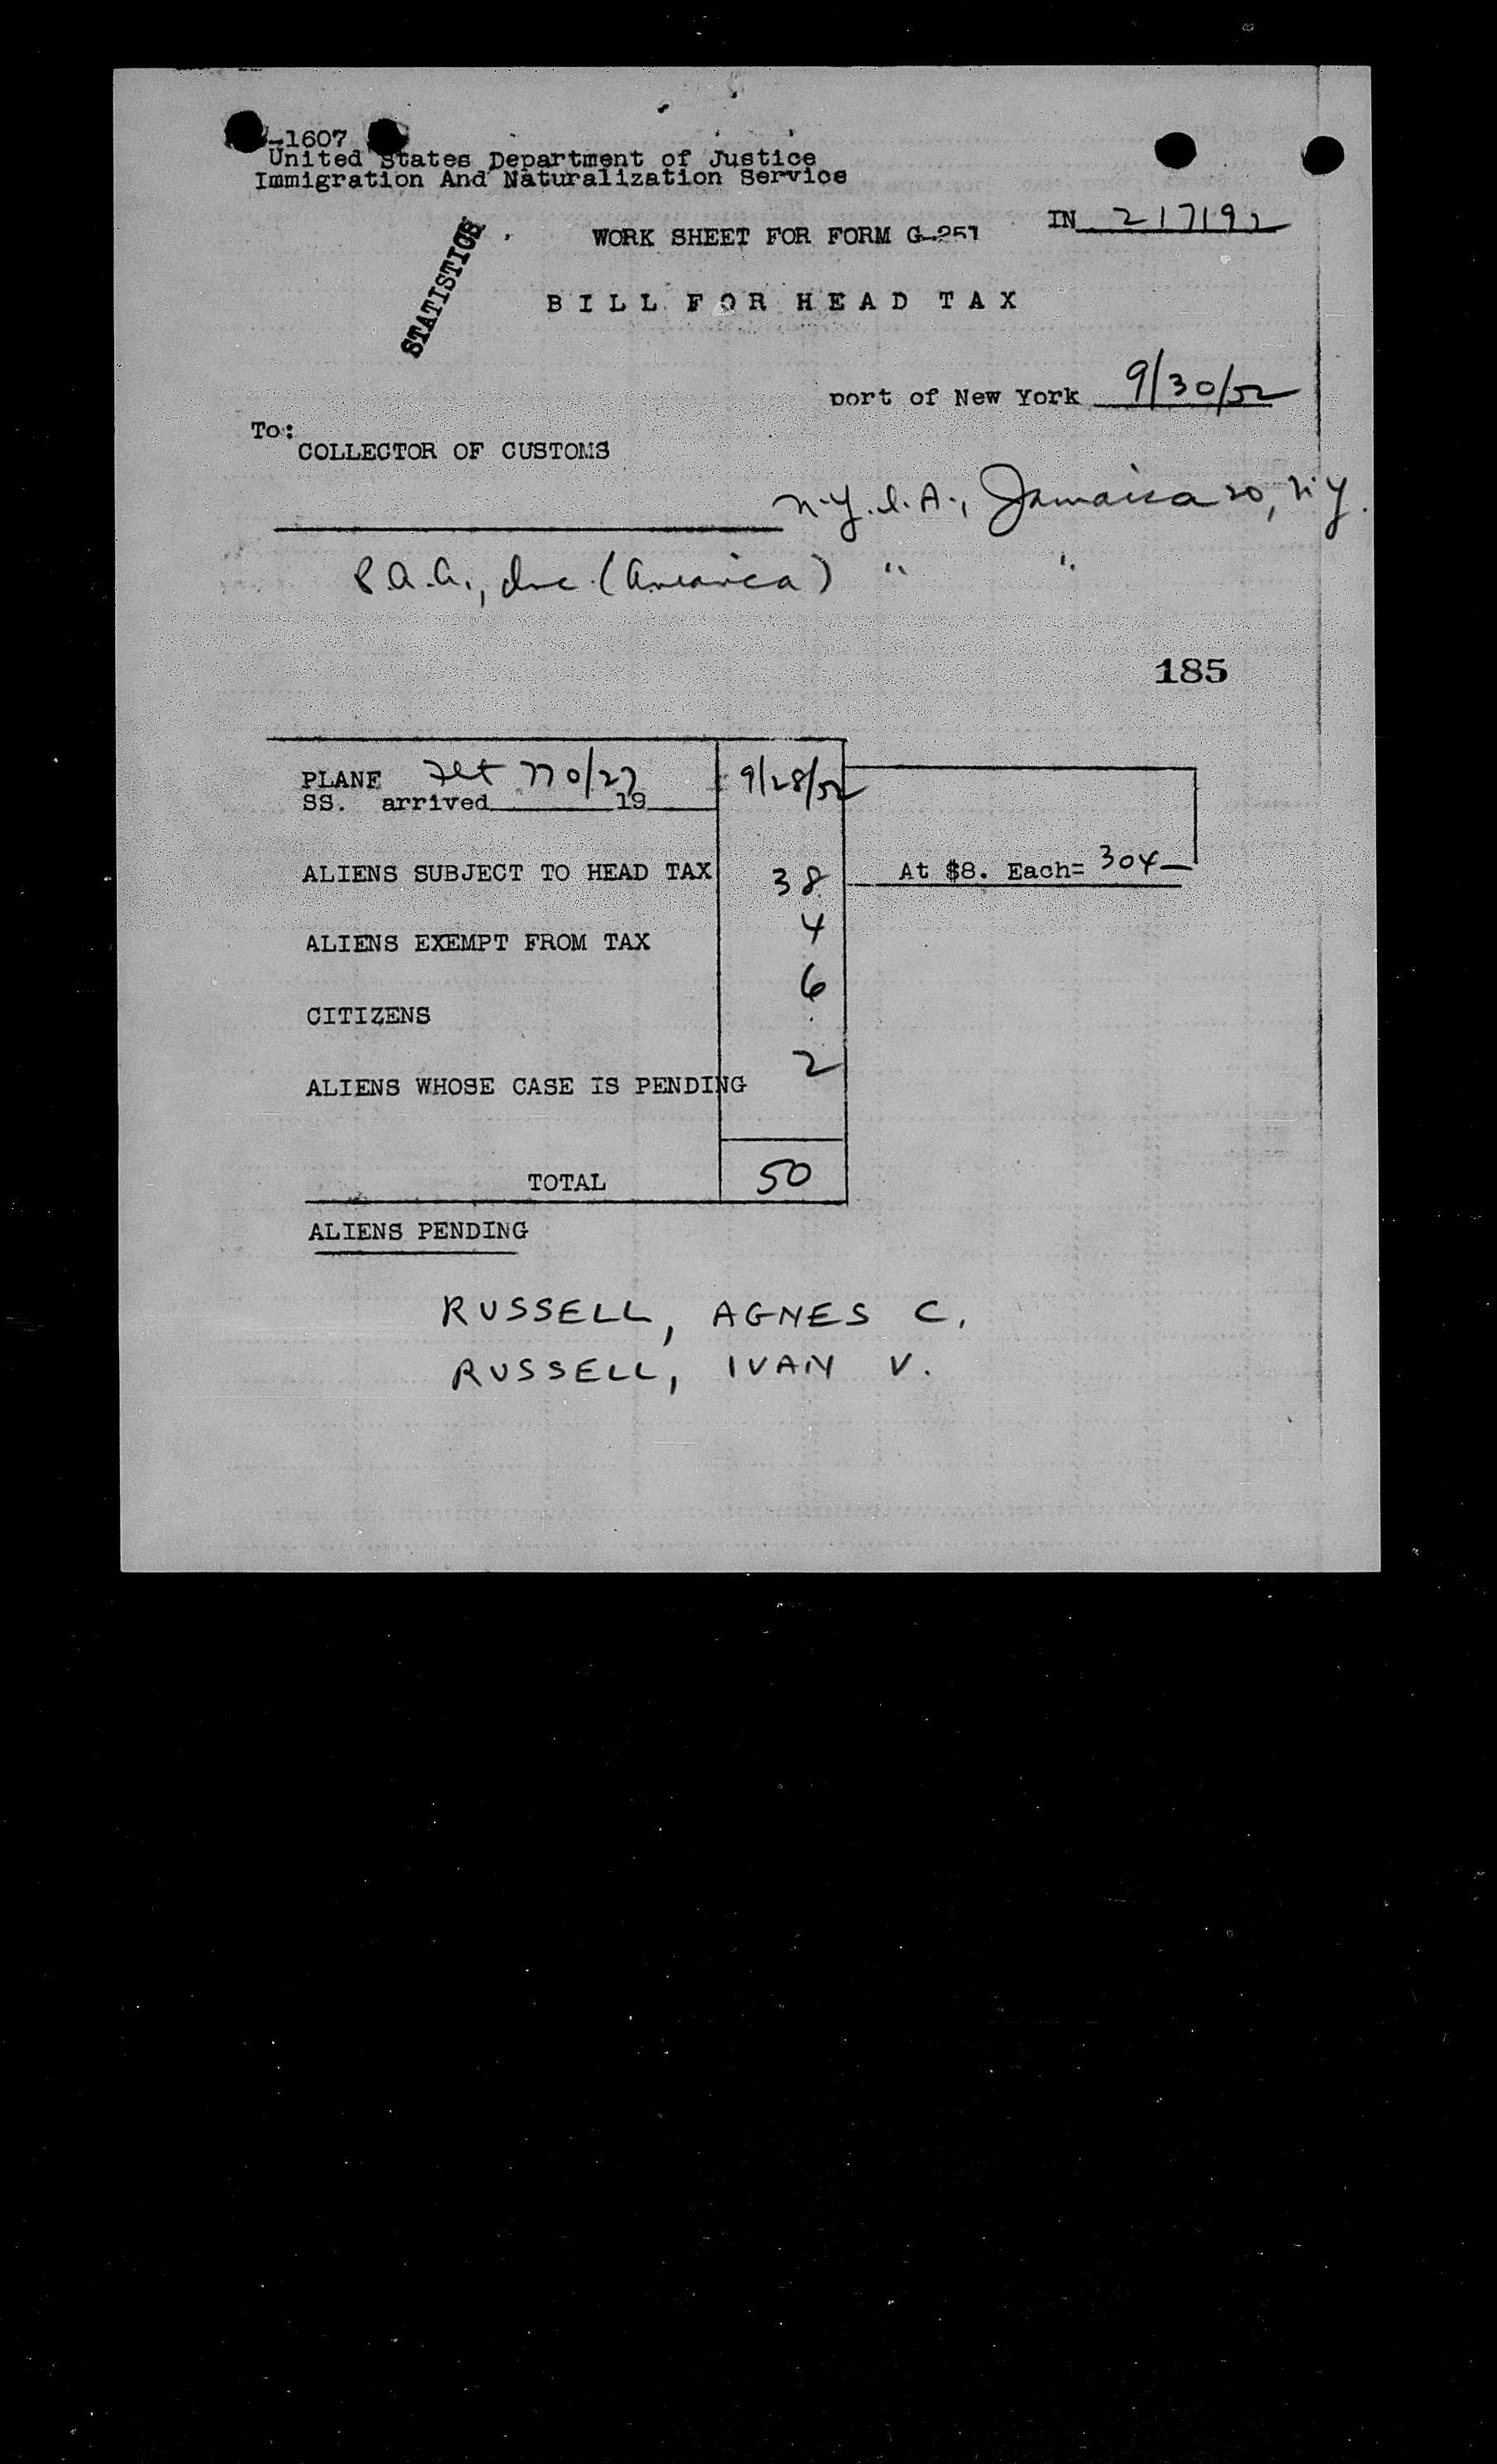 -1607
United States Department of Justice
Immigration And Naturalization Service
IN 217192
WORK SHEET FOR FORM G-251
STATISTICS
BILL FOR HEAD TAX
port of New York 9/30/52
To:
COLLECTOR OF CUSTOMS
N.Y.I.A., Jamaica 20, N.Y.
P.A.A., Inc. (America) " "
185
PLANE Flt 770/27 9/28/52
SS. arrived 19
ALIENS SUBJECT TO HEAD TAX 38 At $8. Each= 304—
ALIENS EXEMPT FROM TAX 4
CITIZENS 6
ALIENS WHOSE CASE IS PENDING 2
TOTAL 50
ALIENS PENDING
RUSSELL, AGNES C.
RUSSELL, IVAN V.